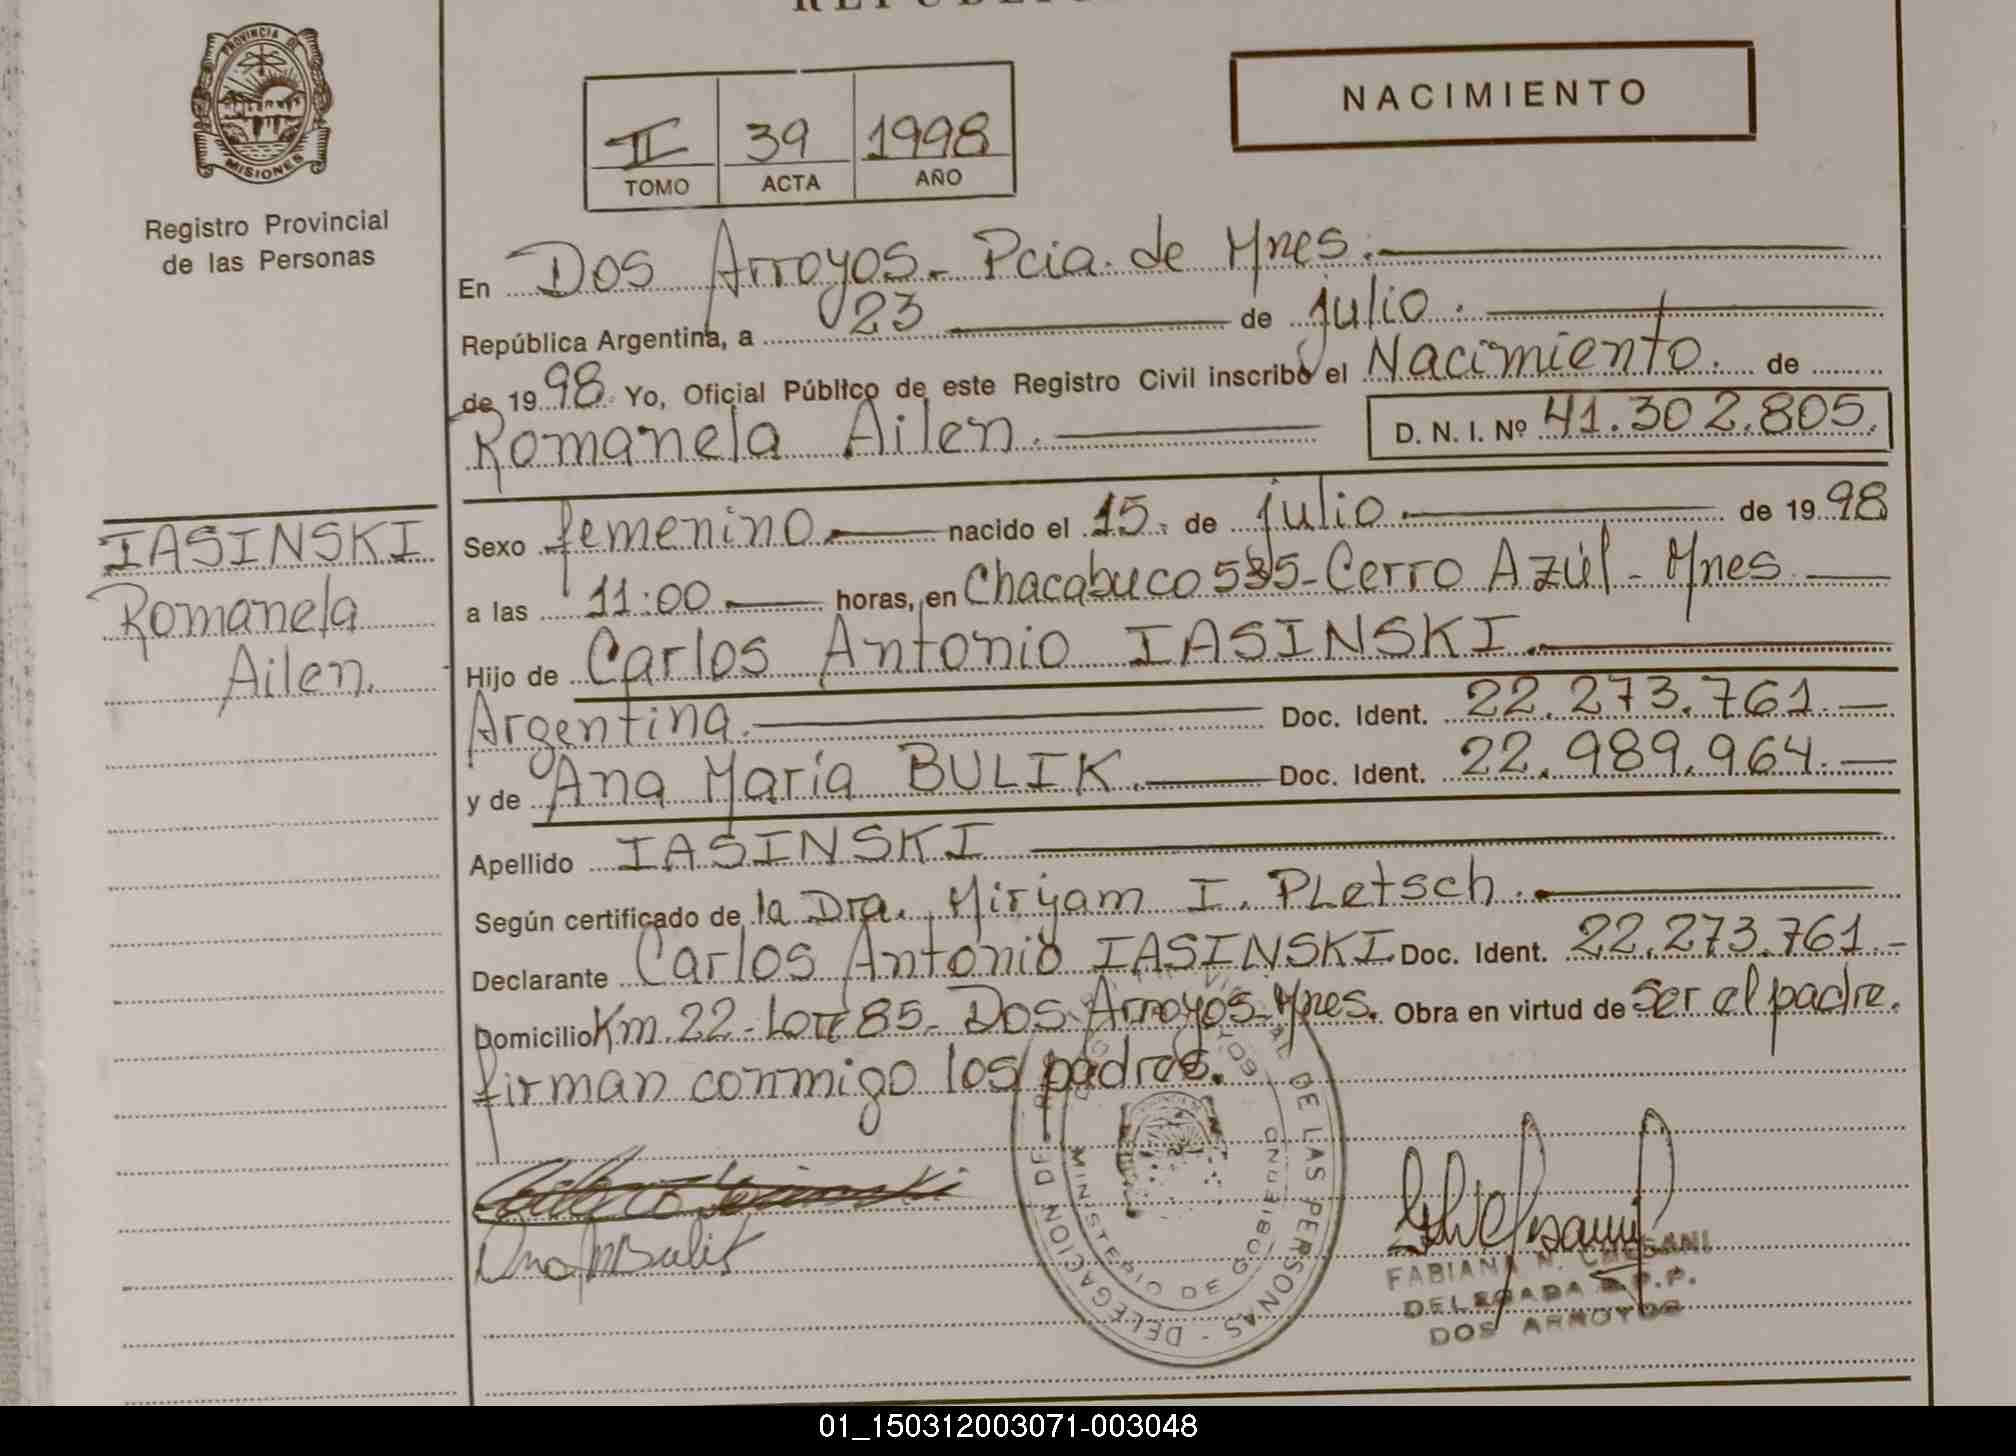 PROVINCIA DE
MISIONES
Registro Provincial
de las Personas
II 39 1998
TOMO ACTA AÑO
NACIMIENTO
En Dos Arroyos. Pcia. de Mnes.
República Argentina, a 23 de julio.
de 1998. Yo, Oficial Público de este Registro Civil inscribo el Nacimiento. de
Romanela Ailen. D. N. I. Nº 41.302.805.
IASINSKI
Romanela
Ailen.
Sexo femenino nacido el 15. de julio. de 1998
a las 11:00 horas, en Chacabuco 535-Cerro Azúl - Mnes
Hijo de Carlos Antonio IASINSKI.
Argentina. Doc. Ident. 22.273.761.
y de Ana María BULIK. Doc. Ident. 22.989.964.
Apellido IASINSKI
Según certificado de la Dra. Miryam I. PLetsch.
Declarante Carlos Antonio IASINSKI. Doc. Ident. 22.273.761.-
Domicilio Km.22-Lote 85- Dos Arroyos-Mnes. Obra en virtud de Ser el padre.
firman conmigo los padres.
DE LAS PERSONAS - DELEGACION DE
MINISTERIO DE GOBIERNO
FABIANA N.
DELEGADA R.P.P.
DOS ARROYOS
01_150312003071-003048